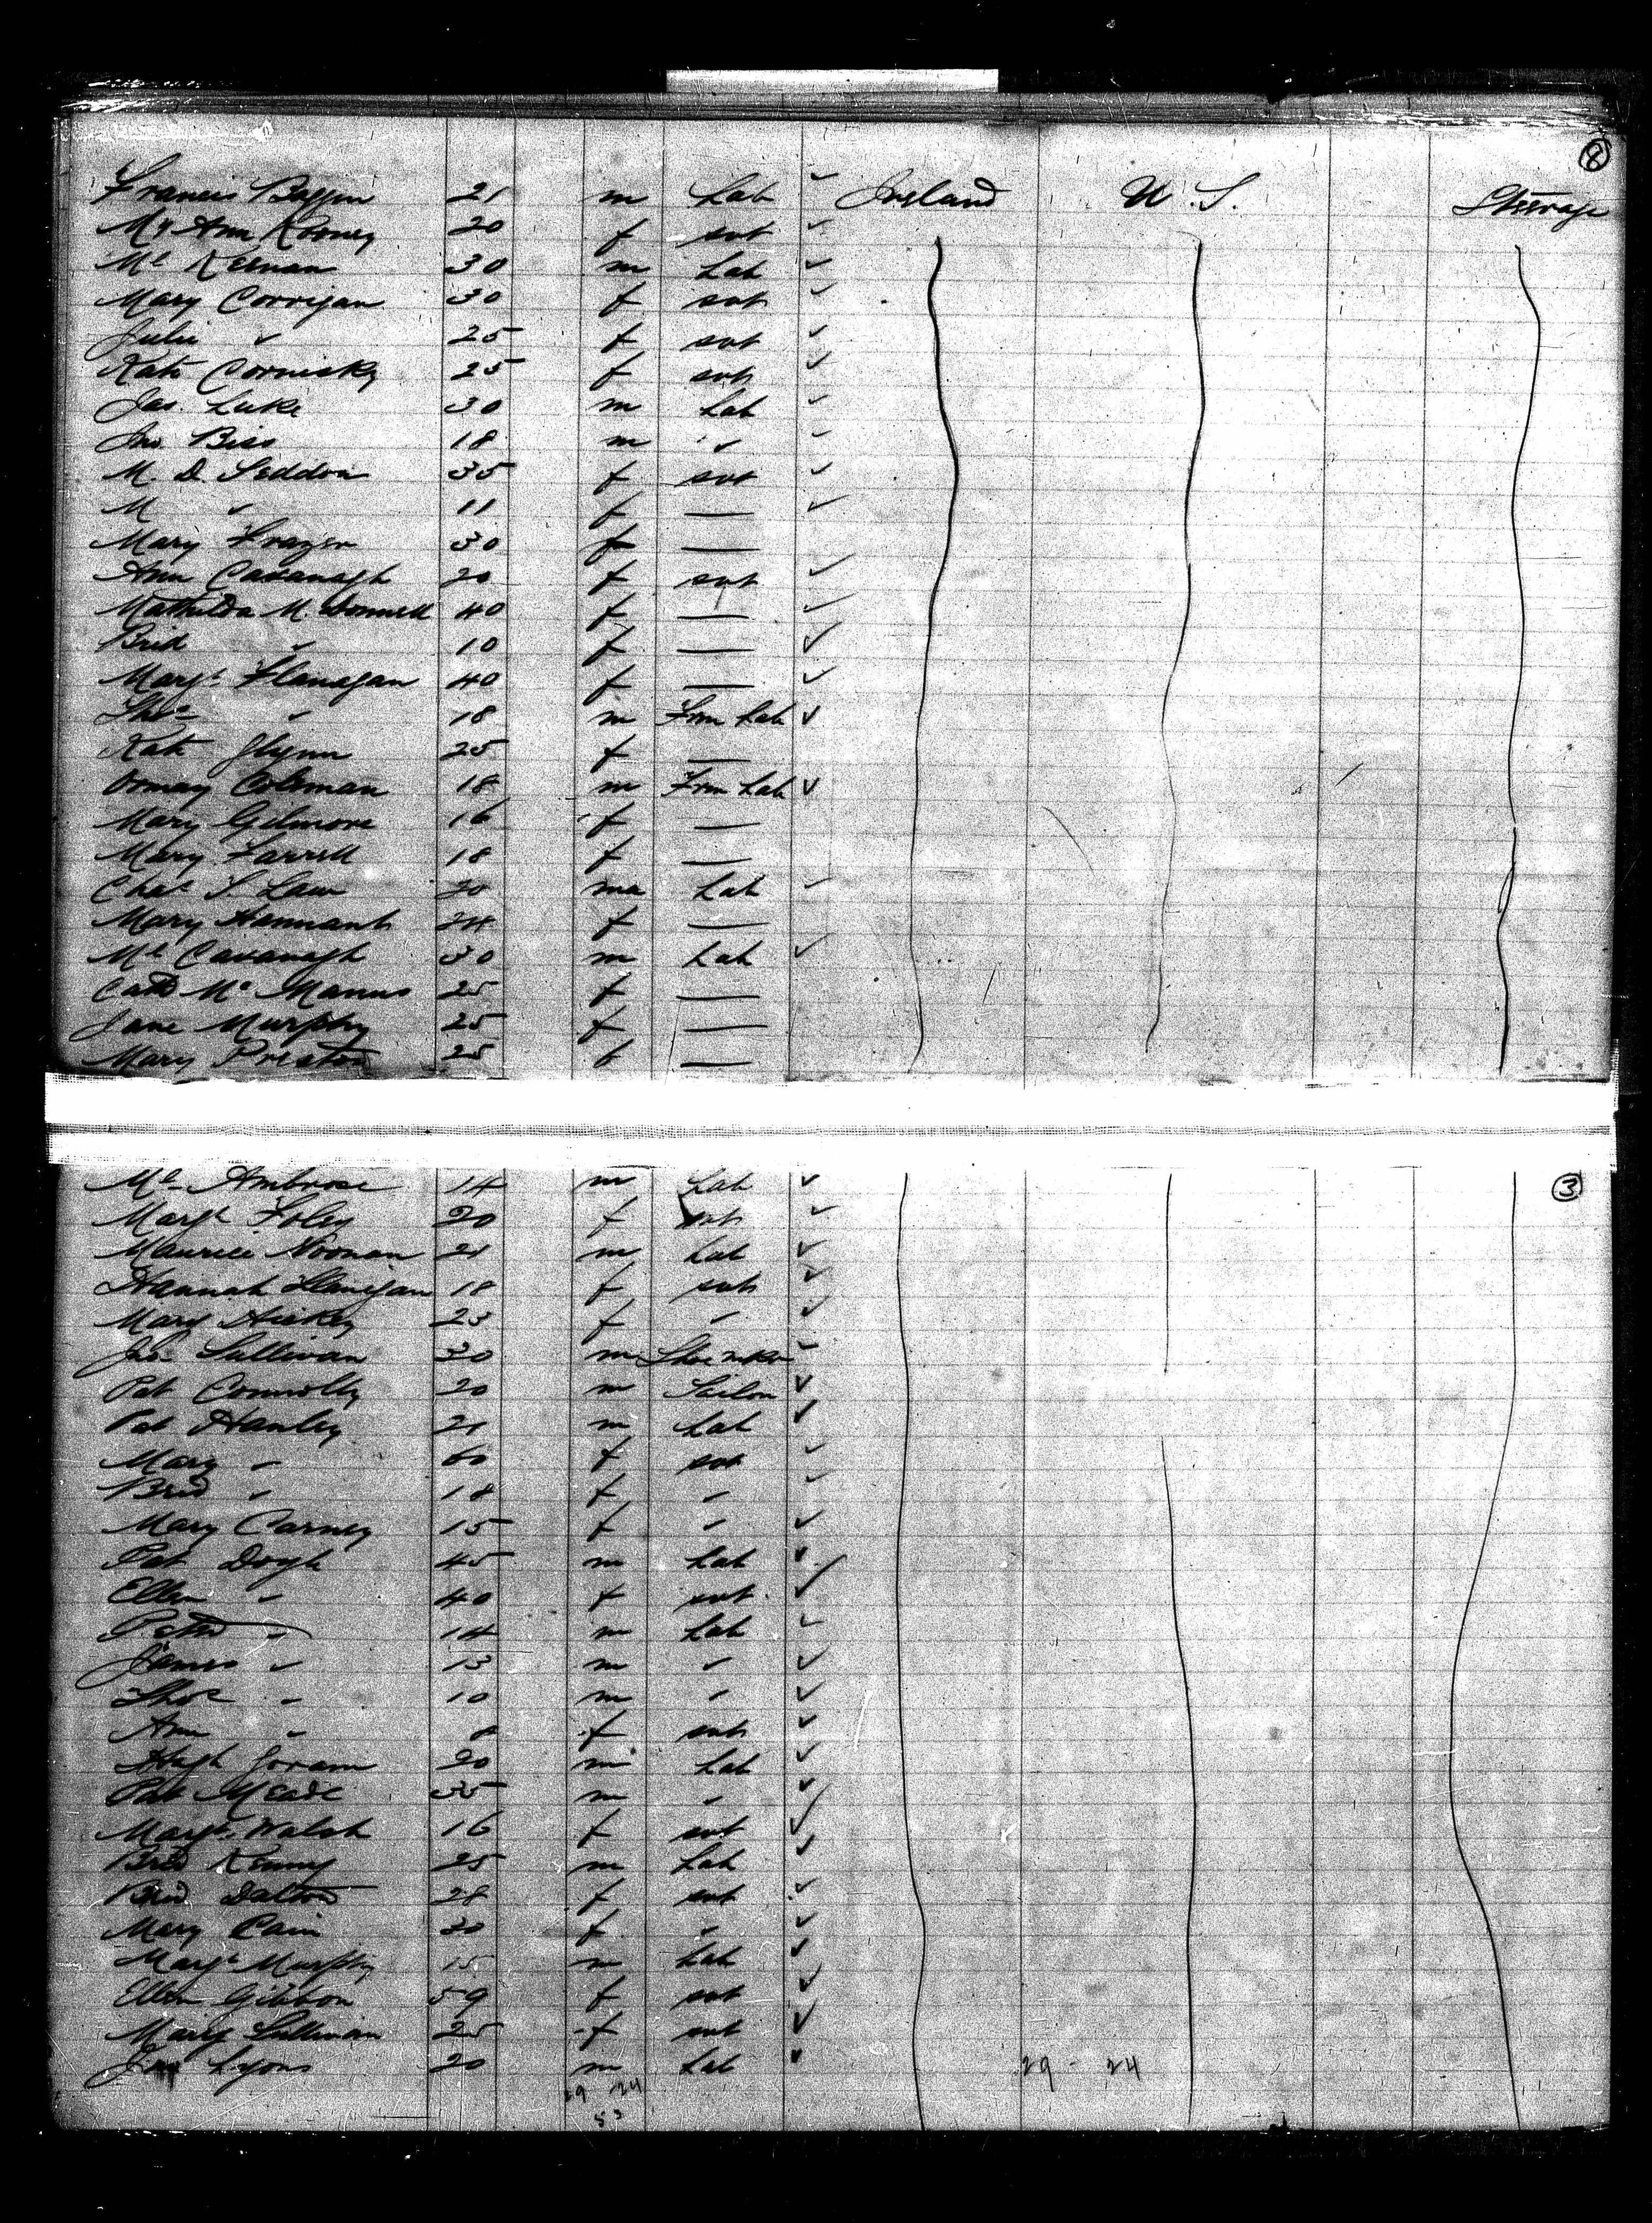 8
Francis 21 m Lab ✓ Ireland U.S. Steerage
My Ann Rooney 20 f svt ✓
Ml Kernan 30 m Lab ✓
Mary Corrigan 30 f svt ✓
Julia " 25 f svt ✓
Kate 25 f svt ✓
Jas. Luke 30 m Lab ✓
Jno. Biss 18 m " ✓
M. D. Seddon 35 f svt ✓
M " 11 f — ✓
Mary Frazer 30 f —
Ann Cavanagh 20 f svt ✓
Mathilda McDonnell 40 f — ✓
Brid " 10 f — ✓
Margt Flanagan 40 f — ✓
Thos " 18 m Frm Lab ✓
Kate Glynn 25 f —
Coleman 18 m Frm Lab ✓
Mary Gilmore 16 f —
Mary Farrell 18 f —
Chas S. Law 20 m Lab ✓
Mary Hannant 24 f —
Ml Cavanagh 30 m Lab ✓
Cath Mc Manus 25 f —
Jane Murphy 25 f —
Mary Preston 25 f —
3
Ml Ambrose 14 m Lab ✓
Margt Foley 20 f svt ✓
Maurice Noonan 21 m Lab ✓
Hannah Flanigan 18 f svt ✓
Mary Hickey 23 f " ✓
Jas Sullivan 30 m Shoe mkr ✓
Pat Connolly 20 m Sailor ✓
Pat Hanley 21 m Lab ✓
Mary " 60 f svt ✓
Brid " 18 f " ✓
Mary Carney 15 f " ✓
Pat Doyle 45 m Lab ✓
Ellen " 40 f svt ✓
Peter " 14 m Lab ✓
James " 13 m " ✓
Thos " 10 m " ✓
Ann " 8 f svt ✓
Hugh Goram 20 m Lab ✓
Pat Meade 35 m " ✓
Margt. Walsh 16 f svt ✓
Brid Kenny 25 m Lab ✓
Brid Dalton 28 f svt ✓
Mary Cain 30 f " ✓
Margt Murphy 15 m Lab ✓
Ellen Gibbon 59 f svt ✓
Mary Sullivan 25 f svt ✓
Jas Lyons 20 m Lab ✓
29 - 24
29 - 24
53